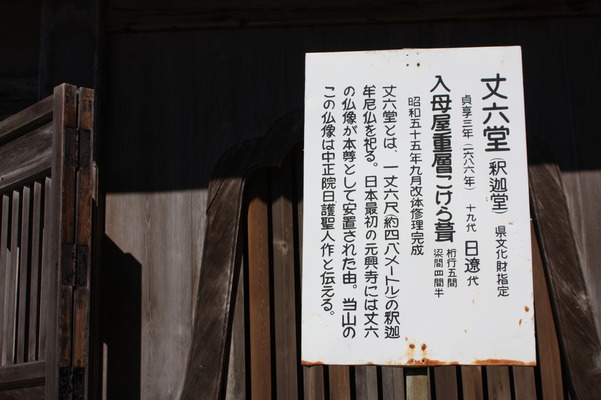 丈六堂(釈迦堂) 県文化財指定
貞享三年(一六八六年) 十九代 日遼代
入母屋重層こけら葺 桁行五間
梁間四間半
昭和五十五年九月改体修理完成
丈六堂とは、一丈六尺(約四八メートル)の釈迦
牟尼仏を祀る。日本最初の元興寺には丈六
の仏像が本尊として安置された由。当山の
この仏像は中正院日護聖人作と伝える。